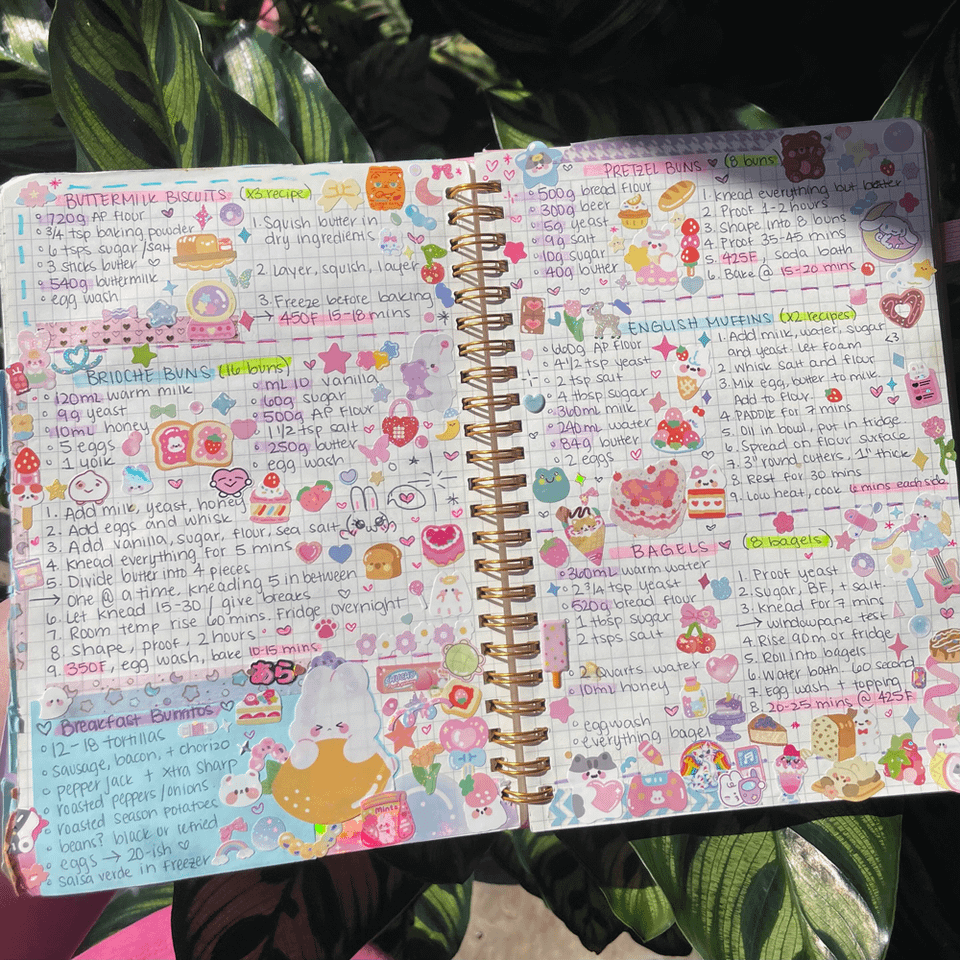 BUTTERMILK BISCUITS (x3 recipe)
720g AP flour
3/4 tsp baking powder
6 tsps sugar/salt
3 sticks butter
540g buttermilk
egg wash
1. Squish butter in
dry ingredients
2. Layer, squish, layer
3. Freeze before baking
→ 450F 15-18 mins
BRIOCHE BUNS (16 buns)
120mL warm milk
9g yeast
10mL honey
5 eggs
1 yolk
mL 10 vanilla
60g sugar
500g AP flour
1 1/2 tsp salt
250g butter
egg wash
1. Add milk, yeast, honey
2. Add eggs and whisk
3. Add vanilla, sugar, flour, sea salt
4. Knead everything for 5 mins
5. Divide butter into 4 pieces
→ One @ a time, kneading 5 in between
6. Let knead 15-30 / give breaks
7. Room temp rise 60 mins. Fridge overnight
8. Shape, proof, 2 hours
9. 350F, egg wash, bake 10-15 mins
あら
Breakfast Burritos
12-18 tortillas
sausage, bacon, + chorizo
pepper jack + xtra sharp
roasted peppers/onions
roasted season potatoes
beans? black or refried
eggs → 20-ish
salsa verde in freezer
mints
PRETZEL BUNS (8 buns
500g bread flour
300g beer
5g yeast
9g salt
10g sugar
40g butter
1. Knead everything but butter
2. Proof 1-2 hours
3. Shape into 8 buns
4. Proof 35-45 mins
5. 425F, soda bath
6. Bake @ 15-20 mins
ENGLISH MUFFINS (x2 recipes)
660g AP flour
4 1/2 tsp yeast
2 tsp salt
4 tbsp sugar
360mL milk
240mL water
84g butter
2 eggs
1. Add milk, water, sugar,
and yeast. Let foam
<3
2. Whisk salt and flour
3. Mix egg, butter to milk.
Add to flour
4. PADDLE for 7 mins
5. Oil in bowl, put in fridge
6. Spread on flour surface
7. 3" round cutters, 1" thick
8. Rest for 30 mins
9. Low heat, cook 6 mins each side
BAGELS (8 bagels)
360mL warm water
2 3/4 tsp yeast
520g bread flour
1 tbsp sugar
2 tsps salt
2 Quarts water
10mL honey
eggwash
everything bagel
1. Proof yeast
2. sugar, BF, + salt
3. Knead for 7 mins
→ windowpane test
4. Rise 90m or fridge
5. Roll into bagels
6. Water bath . 60 second
7. Egg wash + topping
8. 20-25 mins @ 425F